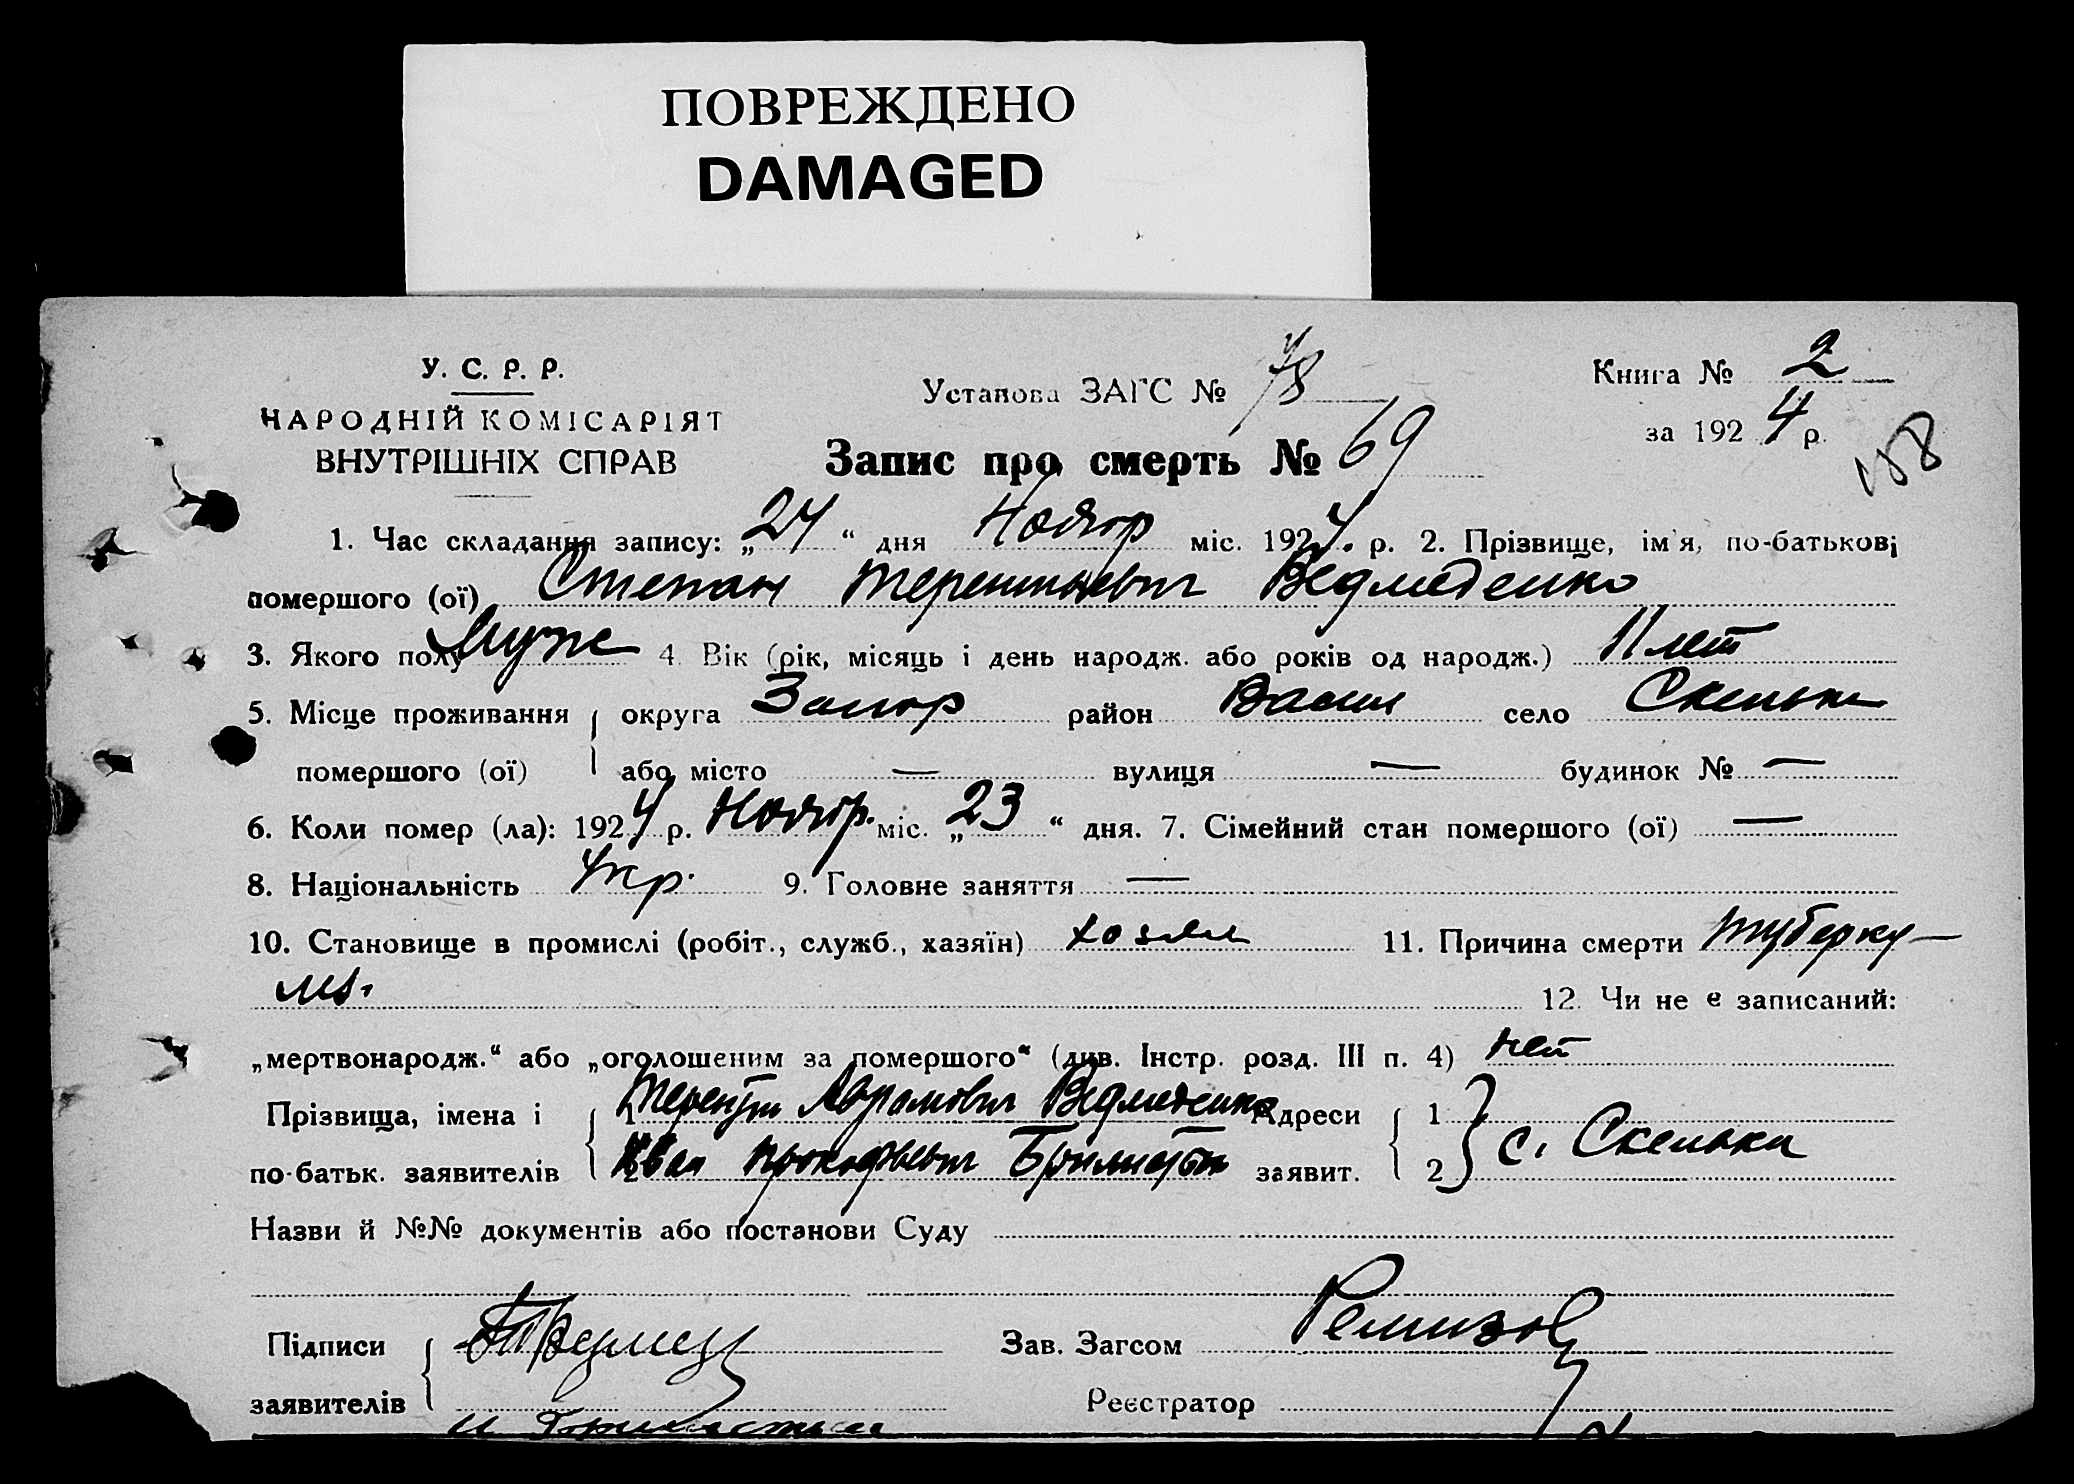 ПОВРЕЖДЕНО
DAMAGED
У. С. Р. Р.
НАРОДНІЙ КОМІСАРІЯТ
ВНУТРІШНІХ СПРАВ
Установа ЗАГС № 78
Запис про смерть № 69
Книга № 2
за 1924 р.
1. Час складання запису: „24“ дня Ноябр міс. 1924 р. 2. Прізвище, ім'я, по-батькові
помершого (ої) Степан Терентьевич Ведмеденко
3. Якого полу Муж 4. Вік (рік, місяць і день народж. або років од народж.) 11 лет
5. Місце проживання округа Запор район Васил село Скельки
помершого (ої) або місто — вулиця — будинок № —
6. Коли помер (ла): 1924 р. Ноябр. міс. „23“ дня. 7. Сімейний стан помершого (ої) —
8. Національність Укр. 9. Головне заняття —
10. Становище в промислі (робіт., служб., хазяїн) хозяин 11. Причина смерти туберку-
лез.
12. Чи не є записаний:
„мертвонародж.“ або „оголошеним за помершого“ (див. Інстр. розд. III п. 4) нет
Прізвища, імена і 1 Терентий Аврамович Ведмеденко Адреси 1
по-батьк. заявителів 2 Иван Прокофьевич заявит. 2 с. Скельки
Назви й №№ документів або постанови Суду
Підписи Зав. Загсом Ремизов
заявителів Реєстратор